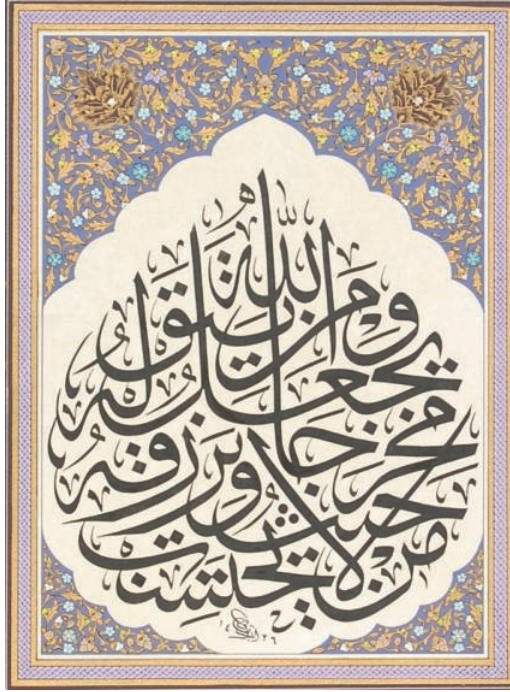 ومن يتق الله
يجعل له
مخرجا ويرزقه
من حيث لا يحتسب
١٤٢٦